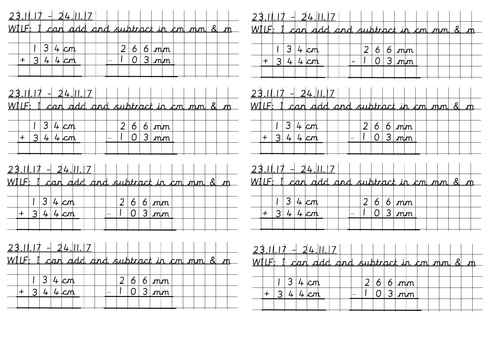 23.11.17 - 24.11.17
WILF: I can add and subtract in cm mm & m
134cm 266mm
+ 344cm - 103mm
23.11.17 - 24.11.17
WILF: I can add and subtract in cm mm & m
134cm 266mm
+ 344cm - 103mm
23.11.17 - 24.11.17
WILF: I can add and subtract in cm mm & m
134cm 266mm
+ 344cm - 103mm
23.11.17 - 24.11.17
WILF: I can add and subtract in cm mm & m
134cm 266mm
+ 344cm - 103mm
23.11.17 - 24.11.17
WILF: I can add and subtract in cm mm & m
134cm 266mm
+ 344cm - 103mm
23.11.17 - 24.11.17
WILF: I can add and subtract in cm mm & m
134cm 266mm
+ 344cm - 103mm
23.11.17 - 24.11.17
WILF: I can add and subtract in cm mm & m
134cm 266mm
+ 344cm - 103mm
23.11.17 - 24.11.17
WILF: I can add and subtract in cm mm & m
134cm 266mm
+ 344cm - 103mm